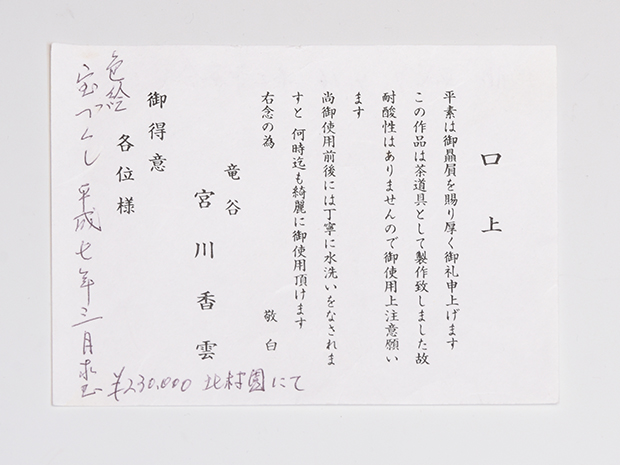 口上
平素は御贔屓を賜り厚く御礼申上げます
この作品は茶道具として製作致しました故
耐酸性はありませんので御使用上注意願い
ます
尚御使用前後には丁寧に水洗いをなされま
すと 何時迄も綺麗に御使用頂けます
右念の為
敬白
竜谷
宮川香雲
御得意
各位様
色絵
宝づくし 平成七年三月求む
¥230,000 北村園にて